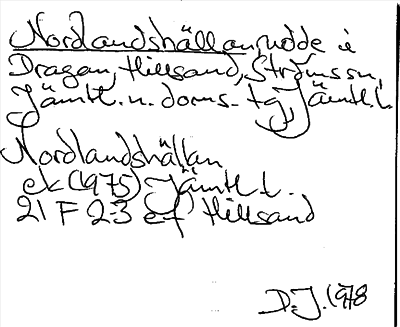 Nordlandshällan, udde i
Dragan, Hillsand, Ströms sn,
Jämtl. n. doms. tg, Jämtl. l.
Nordlandshällan
ek (1975) Jämtl. l.
21 F 2-3 e f Hillsand
D.J. 1978